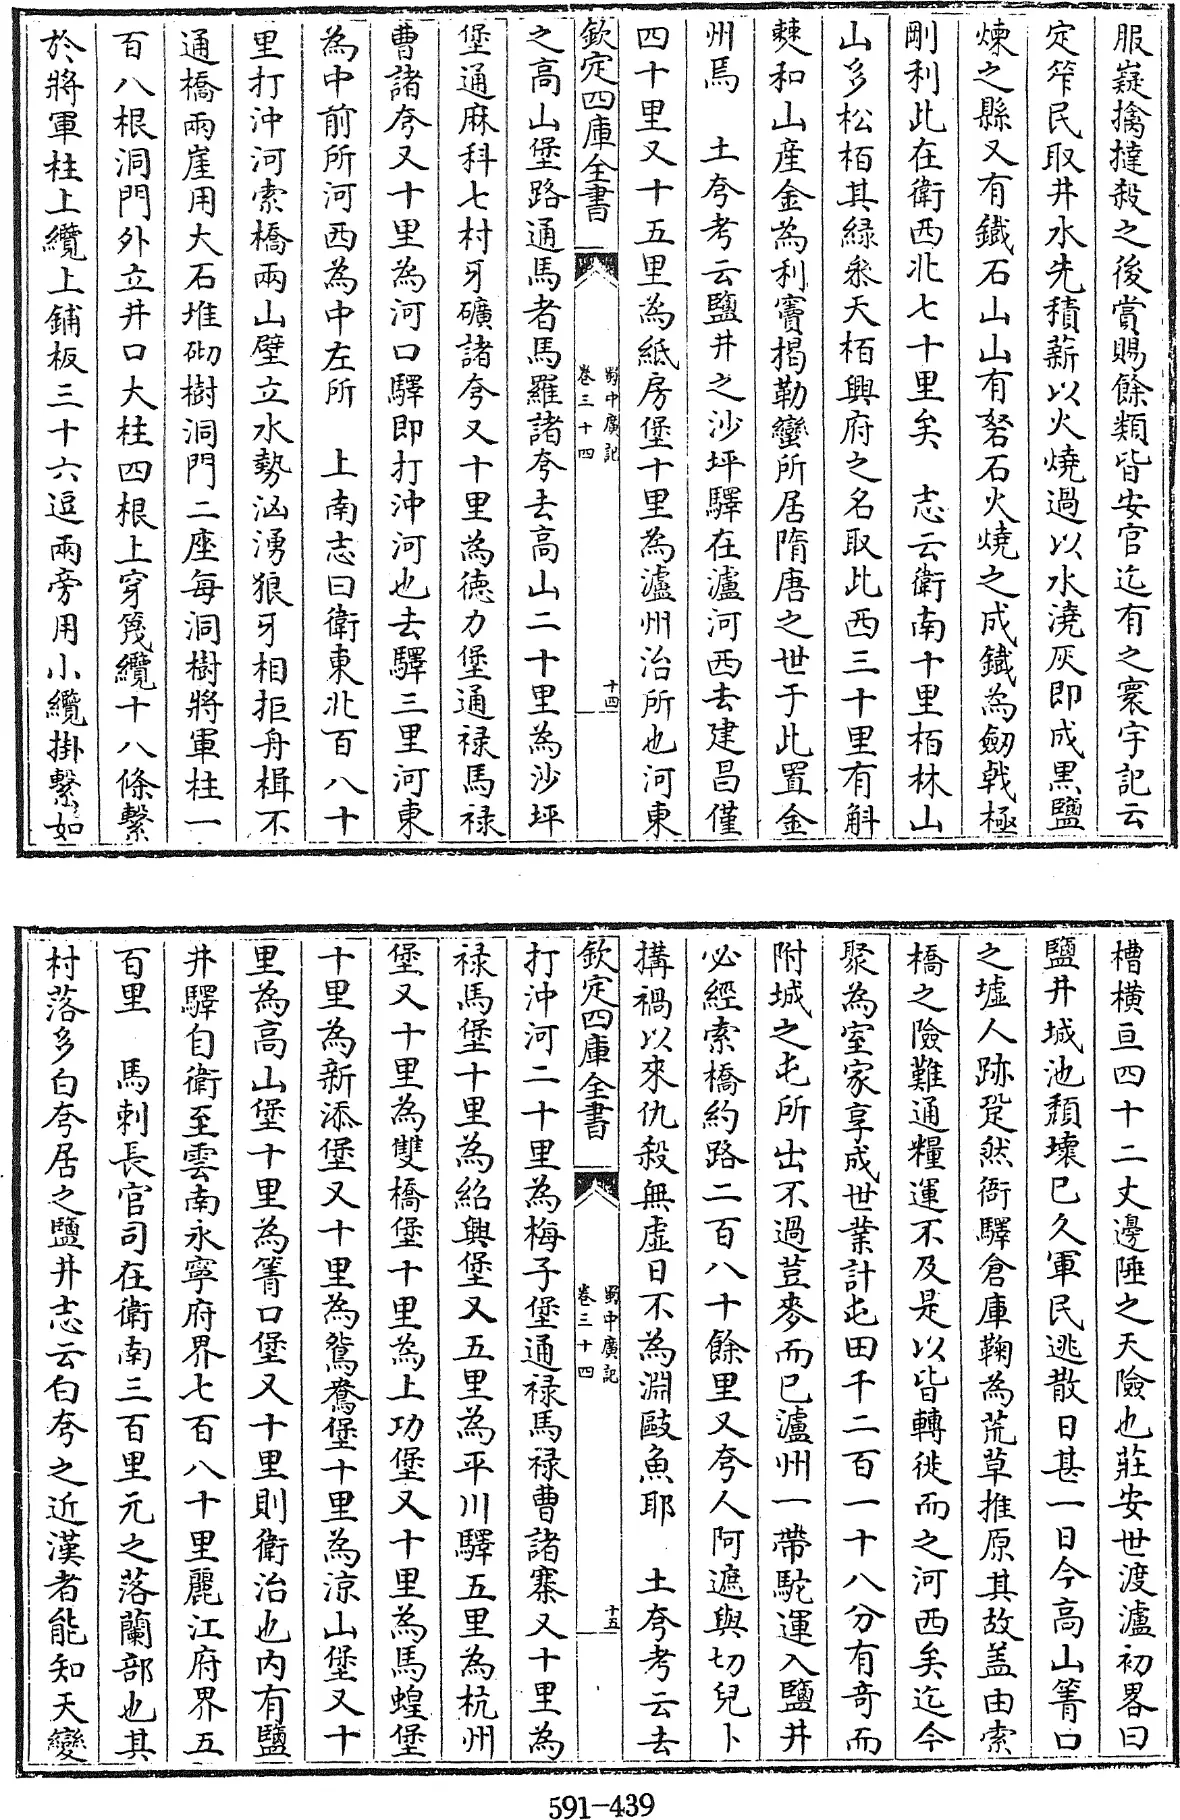 服嶷擒撻殺之後賞賜餘類皆安官迄有之寰宇記云
定筰民取井水先積薪以火燒過以水澆灰即成黑鹽
煉之縣又有鐵石山山有砮石火燒之成鐵為劒㦸極
剛利此在衛西北七十里矣　志云衛南十里栢林山
山多松栢其緑叅天栢興府之名取此西三十里有斛
㯋和山産金為利竇揭勒蠻所居隋唐之世于此置金
州焉　土夸考云鹽井之沙坪驛在瀘河西去建昌僅
四十里又十五里為紙房堡十里為瀘州治所也河東
欽定四庫全書
蜀中廣記
卷三十四
十四
之高山堡路通馬者馬羅諸夸去高山二十里為沙坪
堡通麻科七村牙礦諸夸又十里為德力堡通禄馬禄
曹諸夸又十里為河口驛即打沖河也去驛三里河東
為中前所河西為中左所　上南志曰衛東北百八十
里打沖河索橋兩山壁立水勢汹湧狼牙相拒舟楫不
通橋兩崖用大石堆砌樹洞門二座每洞樹將軍柱一
百八根洞門外立井口大柱四根上穿篾纜十八條繫
於將軍柱上纜上鋪板三十六逗兩旁用小纜掛繫如
槽橫亘四十二丈邊陲之天險也莊安世渡瀘初畧曰
鹽井城池頽壞已久軍民逃散日甚一日今高山箐口
之墟人跡跫然衙驛倉庫鞠為荒草推原其故盖由索
橋之險難通糧運不及是以皆轉徙而之河西矣迄今
聚為室家享成世業計屯田千二百一十八分有奇而
附城之屯所出不過荳麥而已瀘州一帶駝運入鹽井
必經索橋約路二百八十餘里又夸人阿遮與切兒卜
搆禍以來仇殺無虛日不為淵毆魚耶　土夸考云去
欽定四庫全書
蜀中廣記
卷三十四
十五
打沖河二十里為梅子堡通禄馬禄曹諸寨又十里為
禄馬堡十里為紹興堡又五里為平川驛五里為杭州
堡又十里為雙橋堡十里為上功堡又十里為馬蝗堡
十里為新添堡又十里為鴛鴦堡十里為涼山堡又十
里為高山堡十里為箐口堡又十里則衛治也内有鹽
井驛自衛至雲南永寧府界七百八十里麗江府界五
百里　馬剌長官司在衛南三百里元之落蘭部也其
村落多白夸居之鹽井志云白夸之近漢者能知天變
591-439